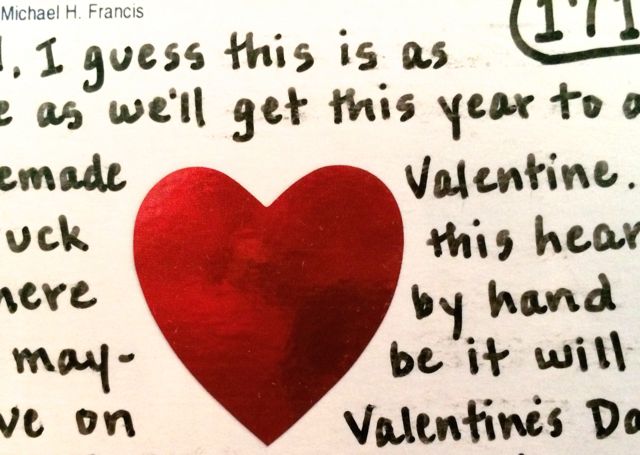 Michael H. Francis
171
I guess this is as
as we'll get this year to
emade Valentine.
uck this hear
here by hand
may- be it will
ve on Valentine's Da